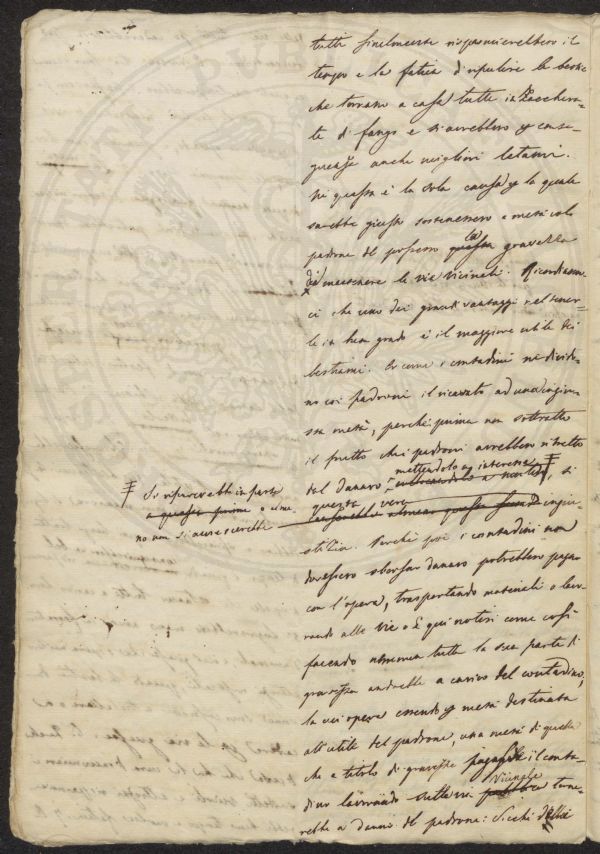 tutti finalmente risparmierebbero il
tempo e la fatica di ripulire le bestie
che tornano a casa tutte inzacchera-
te di fango e si avrebbero per conse-
guenze anche migliori letami.
Ne questa è la sola causa per la quale
sarebbe giusto sostenessero a metà col
padrone del possesso questa la gravezza
di mantenere le vie vicinali. Ricordiamo-
ci che uno dei grandi vantaggi nel tener-
le in buon grado è il maggiore utile dei
bestiami. Or come i contadini ne divido-
no coi padroni il ricavato ad una ingiu-
sta metà, perché prima non sottratto
il frutto che i padroni avrebbero ritratto
dal danaro mettendolo a interesse, si
‡ Si riparerebbe in parte
a questa prima o alme-
no non si accrescerebbe
questa vera
ingiu-
stizia. Perché poi i contadini non
dovessero sborsar danaro potrebbero pagar
con l'opera, trasportando materiali o lavo-
rando alle vie. E qui notisi come così
facendo nemmen tutta la sua parte di
gravezza andrebbe a carico del contadino,
la cui opera essendo per metà destinata
all'utile del padrone, una metà di quella
che a titolo di gravezze pagasse il conta-
dino lavorando sulla via pubblica vicinale torne-
rebbe a danno del padrone: Sicché della